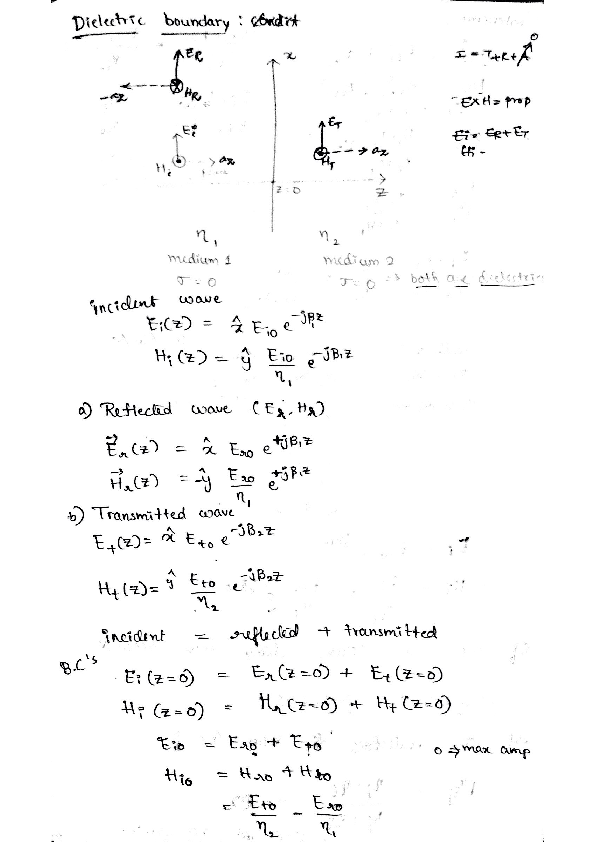 Dielectric boundary :
E_R
x
I = T+R+A 0
-az
H_R
E×H = prop
E_i
E_T
E_i = E_R + E_T
H_i
az
H_T
az
H_i -
z=0
z
η₁
η₂
medium 1
medium 2
σ = 0
σ = 0 => both are dielectric
incident wave
E_i(z) = x̂ E_io e^-jβ₁z
H_i(z) = ŷ E_io/η₁ e^-jβ₁z
a) Reflected wave (E_R, H_R)
E⃗_r(z) = x̂ E_ro e^+jβ₁z
H⃗_r(z) = -ŷ E_ro/η₁ e^+jβ₁z
b) Transmitted wave
E_t(z) = x̂ E_to e^-jβ₂z
H_t(z) = ŷ E_to/η₂ e^-jβ₂z
incident = reflected + transmitted
B.C's
E_i(z=0) = E_r(z=0) + E_t(z=0)
H_i(z=0) = H_r(z=0) + H_t(z=0)
E_io = E_ro + E_to
0 => max amp
H_io = H_ro + H_to
= E_to/η₂ - E_ro/η₁